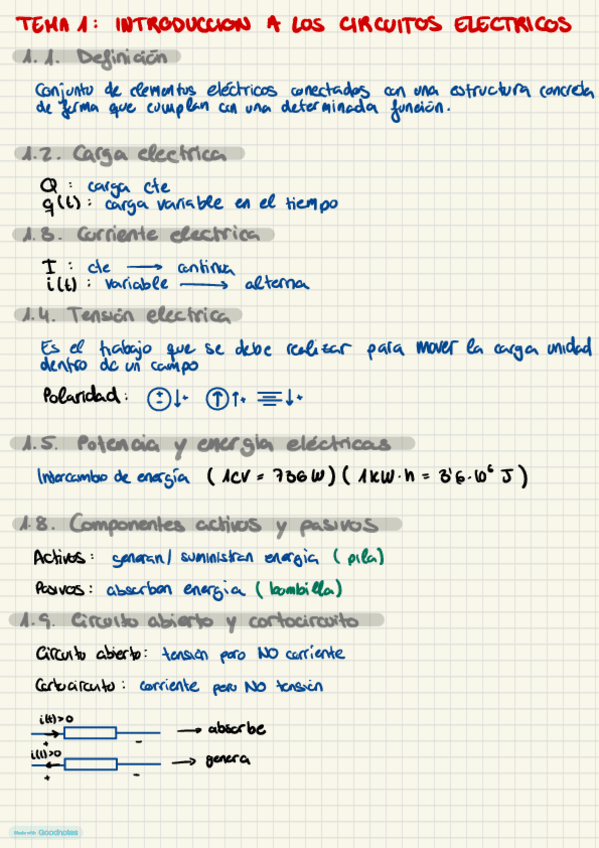 TEMA 1: INTRODUCCION A LOS CIRCUITOS ELECTRICOS
1.1. Definición
Conjunto de elementos eléctricos conectados con una estructura concreta
de forma que cumplan con una determinada función.
1.2. Carga electrica
Q : carga cte
q(t) : carga variable en el tiempo
1.3. Corriente electrica
I : cte → continua
i(t) : variable → alterna
1.4. Tensión electrica
Es el trabajo que se debe realizar para mover la carga unidad
dentro de un campo
Polaridad: ± ↓+ ↑ ↑+ ↓+
1.5. Potencia y energía eléctricas
Intercambio de energía (1CV = 736W) (1KW·h = 3'6·10⁶ J)
1.8. Componentes activos y pasivos
Activos: generan/ suministran energia (pila)
Pasivos: absorben energia (bombilla)
1.9. Circuito abierto y cortocircuito
Circuito abierto: tensión pero NO corriente
Cortocircuito: corriente pero NO tensión
i(t)>0 → absorbe
+ -
i(t)>0 → genera
+ -
Made with Goodnotes